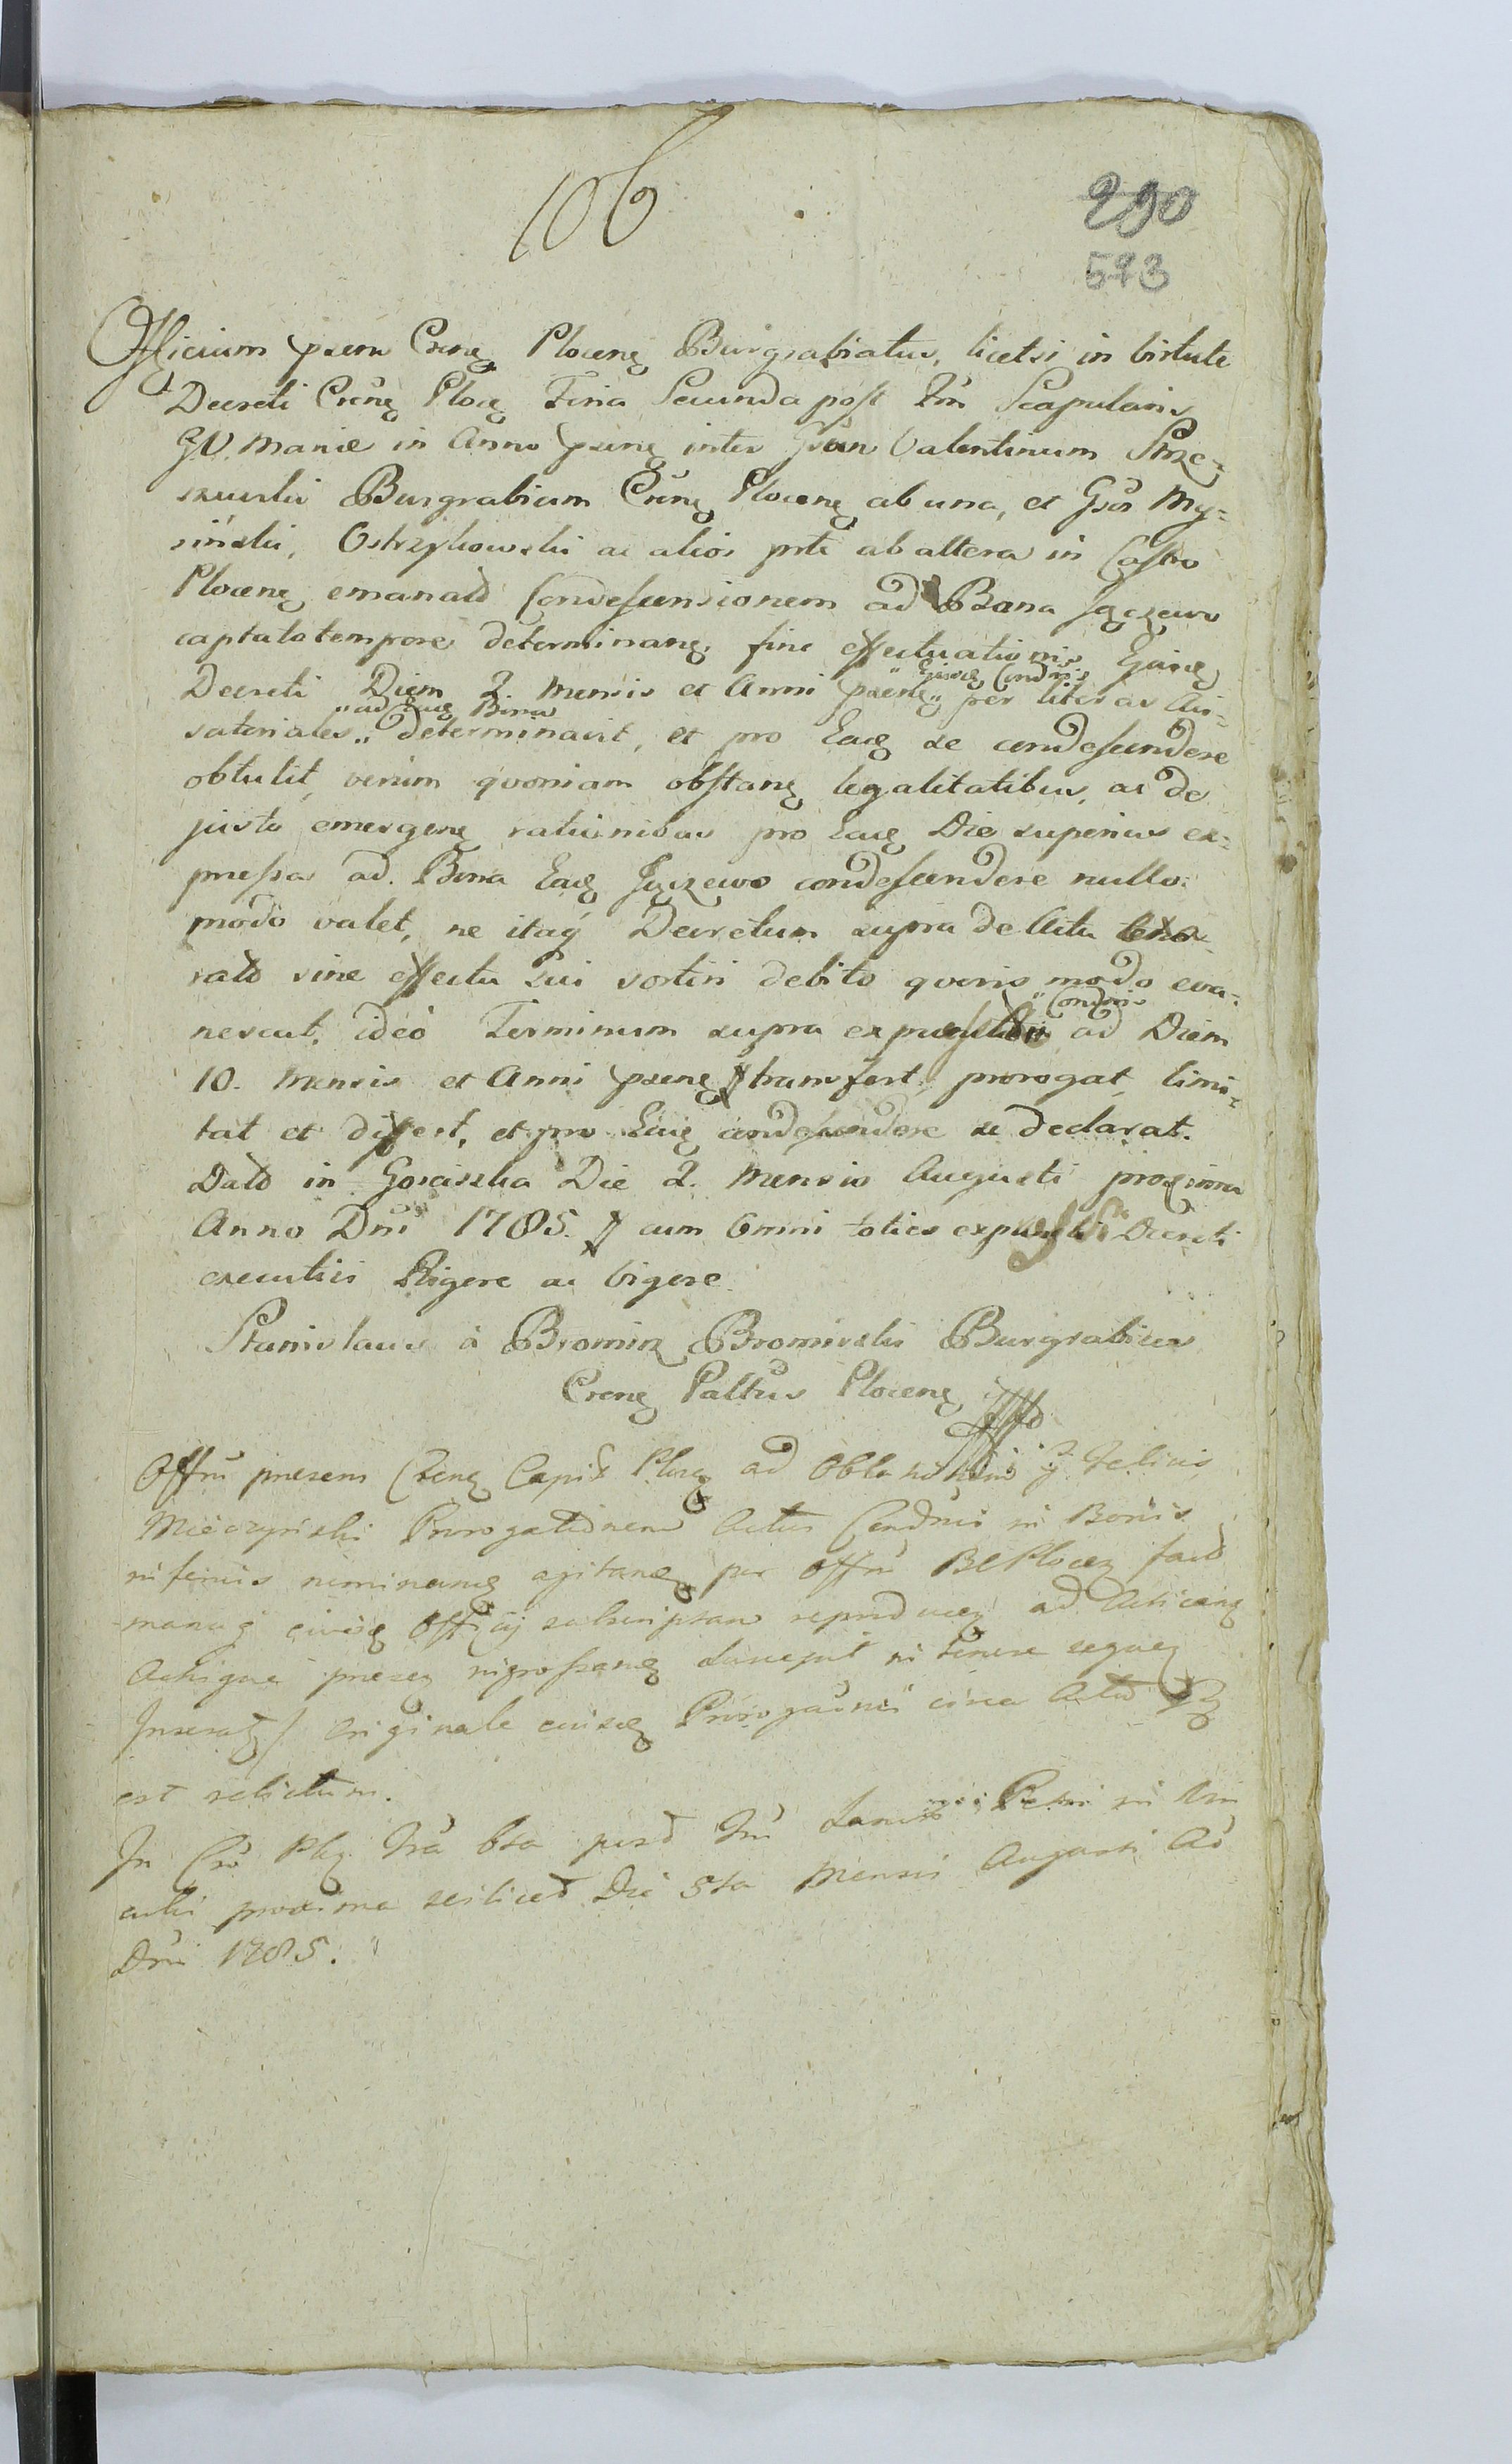 106
290
573
Officium prens Crene Plocene Burgrabiatus, licetsi in virtute
Decreti Crene Ploce Feria Secunda post Fm Scapularis
BV. Mariæ in Anno prene inter Valentinum Strze-
szewski Burgrabium Crene Plocene ab una, et Gsos My-
siński, Ostrzykowski ac alios prte ab altera in Castro
Plocene emanato Condescensionem ad Bona
captato tempore determinane, fine effectuationis Ejusde
Decreti Diem 2. Mensis et Anni prene „Ejusde Condnis„ per literas Ais-
satoriales „ad Eade Bona„ determinavit, et pro Eade se condescendere
obtulit, verum quoniam obstane legalitatibus, ac de
justo emergene rationibus pro Eade Die superius ex-
pressa ad Bona Eade condescendere nullo
modo valet, ne itaq Decretum supra de Actu
rato sine effectu sui sortiri debito quovis modo eva-
nescat, ideo Terminum supra expressum „Condnis ad Diem
10. Mensis et Anni prene transfert, prorogat, limi-
tat et differt, et pro Eade condescendere se declarat.
Dato in Die 2. Mensis Augusti proxima
Anno Dni 1785. cum omni toties expressi Decreti
executivi Rigore ac Vigore.
Stanislaus à Bromierz Bromirski Burgrabius
Crene Pallus Plocene
Offm presens Crene Capit Ploce ad Oblationem Felicis
Mieczyński Prorogationem Actus Condnis in Bonis
inferius nominane agitane per Offm facto
manuq eiusde Officij subscriptam reproducen ad Acticane
Actisque presen ingrossane suscepit in tenore sequen
Inserat/ originale eiusde Prorogaonis circa Acta
est relictum.
In Cro Ploc Fria 6ta post Fm Sancti Petri in Vin
culis proxima scilicet Die 5ta Mensis Augusti Ao
Dni 1785.